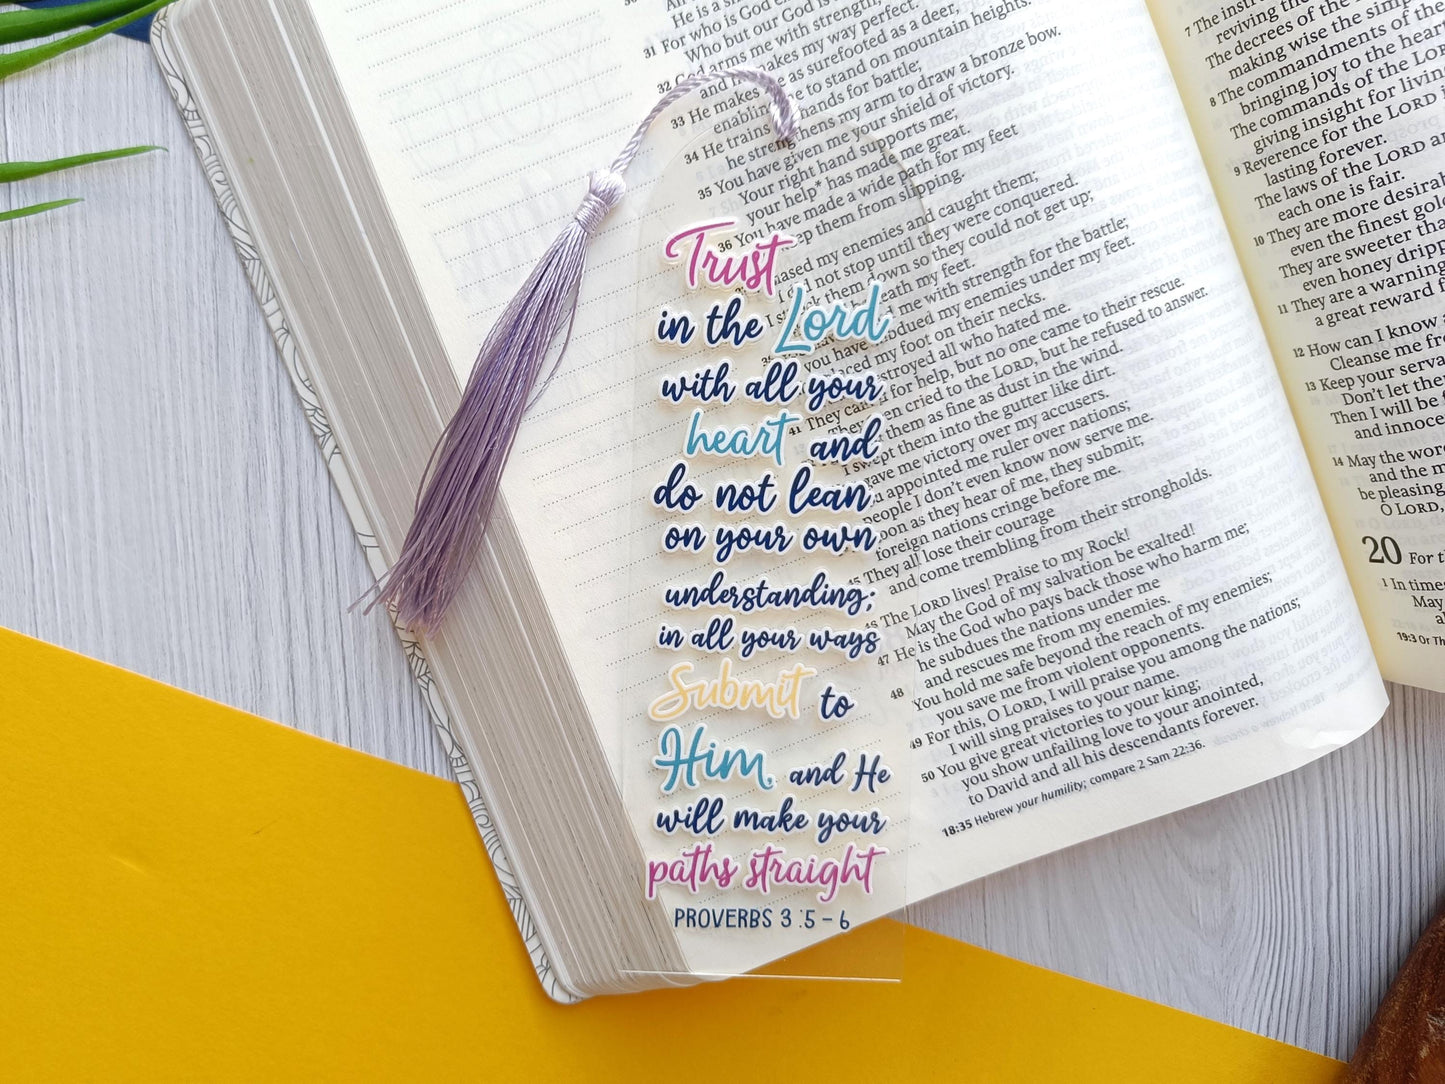 Trust
in the Lord
with all your
heart and
do not lean
on your own
understanding;
in all your ways
Submit to
Him, and He
will make your
paths straight
PROVERBS 3:5-6
31 For who is God e
Who but our God
as surefooted as a deer,
to stand on mountain heights.
33 He trains hands for battle;
he strengthens my arm to draw a bronze bow.
35 You have given me your shield of victory.
Your right hand supports me;
your help* has made me great.
36 You have made a wide path for my feet
keep them from slipping.
chased my enemies and caught them;
did not stop until they were conquered.
them down so they could not get up;
beneath my feet.
me with strength for the battle;
subdued my enemies under my feet.
placed my foot on their necks.
destroyed all who hated me.
41 They called for help, but no one came to their rescue.
They even cried to the LORD, but he refused to answer.
them as fine as dust in the wind.
I swept them into the gutter like dirt.
gave me victory over my accusers.
appointed me ruler over nations;
people I don't even know now serve me.
soon as they hear of me, they submit;
foreign nations cringe before me.
45 They all lose their courage
and come trembling from their strongholds.
46 The LORD lives! Praise to my Rock!
May the God of my salvation be exalted!
47 He is the God who pays back those who harm me;
he subdues the nations under me
48 and rescues me from my enemies.
You hold me safe beyond the reach of my enemies;
you save me from violent opponents.
49 For this, O LORD, I will praise you among the nations;
I will sing praises to your name.
50 You give great victories to your king;
you show unfailing love to your anointed,
to David and all his descendants forever.
18:35 Hebrew your humility; compare 2 Sam 22:36.
7 The instr
reviving the
The decrees of the
making wise the simp
8 The commandments of the
bringing joy to the hear
The commands of the LO
giving insight for livin
9 Reverence for the LORD i
lasting forever.
The laws of the LORD ar
each one is fair.
10 They are more desirab
even the finest gol
They are sweeter tha
even honey dripp
11 They are a warning
a great reward f
12 How can I know
Cleanse me fr
13 Keep your serva
Don't let the
Then I will be
and innoce
14 May the word
and the m
be pleasing
O LORD,
20 For t
1 In time
May
19:3 Or Th